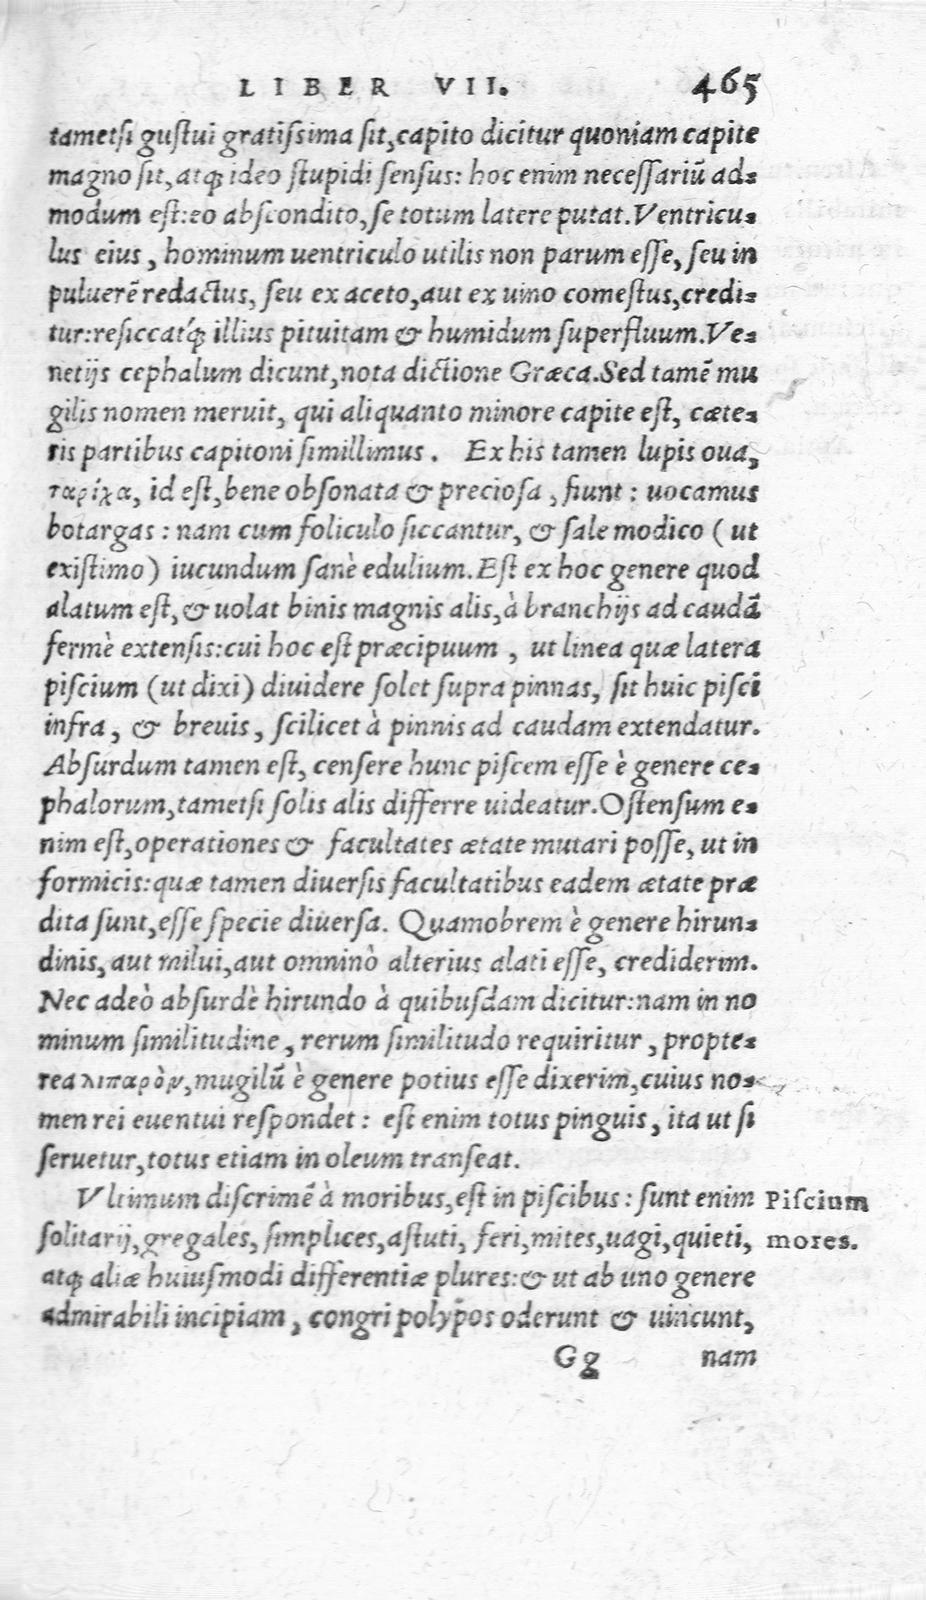 LIBER VII. 465
tametſi guſtui gratiſsima ſit, capito dicitur quoniam capite
magno ſit, atq; ideo ſtupidi ſenſus: hoc enim neceſſariũ ad-
modum eſt: eo abſcondito, ſe totum latere putat. Ventricu-
lus eius, hominum uentriculo utilis non parum eſſe, ſeu in
puluerẽ redactus, ſeu ex aceto, aut ex uino comeſtus, credi-
tur: reſiccatq́; illius pituitam & humidum ſuperfluum. Ve-
netijs cephalum dicunt, nota dictione Græca. Sed tamẽ mu
gilis nomen meruit, qui aliquanto minore capite eſt, cæte-
ris partibus capitoni ſimillimus. Ex his tamen lupis oua,
ταρίχα, id eſt, bene obſonata & precioſa, fiunt: uocamus
botargas: nam cum foliculo ſiccantur, & ſale modico (ut
exiſtimo) iucundum ſanè edulium. Eſt ex hoc genere quod
alatum eſt, & uolat binis magnis alis, à branchijs ad caudã
fermè extenſis: cui hoc eſt præcipuum, ut linea quæ latera
piſcium (ut dixi) diuidere ſolet ſupra pinnas, ſit huic piſci
infra, & breuis, ſcilicet à pinnis ad caudam extendatur.
Abſurdum tamen eſt, cenſere hunc piſcem eſſe è genere ce-
phalorum, tametſi ſolis alis differre uideatur. Oſtenſum e-
nim eſt, operationes & facultates ætate mutari poſſe, ut in
formicis: quæ tamen diuerſis facultatibus eadem ætate præ
dita ſunt, eſſe ſpecie diuerſa. Quamobrem è genere hirun-
dinis, aut milui, aut omninò alterius alati eſſe, crediderim.
Nec adeò abſurdè hirundo à quibuſdam dicitur: nam in no
minum ſimilitudine, rerum ſimilitudo requiritur, propte-
rea λιπαρὸν, mugilũ è genere potius eſſe dixerim, cuius no-
men rei euentui reſpondet: eſt enim totus pinguis, ita ut ſi
ſeruetur, totus etiam in oleum tranſeat.
Vltimum diſcrimẽ à moribus, eſt in piſcibus: ſunt enim Piſcium
ſolitarij, gregales, ſimplices, aſtuti, feri, mites, uagi, quieti, mores.
atq; aliæ huiuſmodi differentiæ plures: & ut ab uno genere
admirabili incipiam, congri polypos oderunt & uincunt,
Gg nam